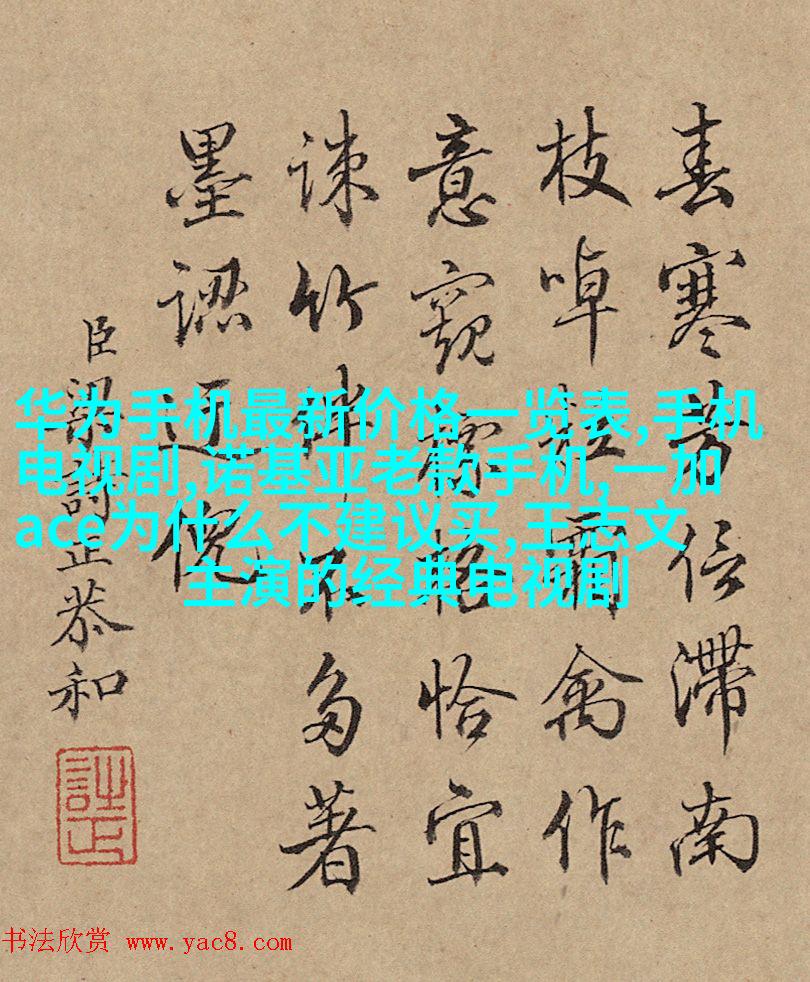 春寒芳信滯南
枝啅霜禽作
意窺恰宜
疎竹多著
墨認
臣梁詩正恭和
詩正
华为手机最新价格一览表,手机
电视剧,诺基亚老款手机,一加
ace为什么不建议买,王志文
主演的经典电视剧
书法欣赏 www.yac8.com